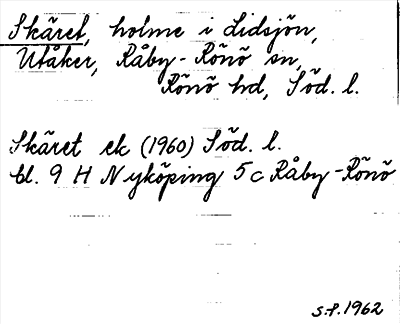 Skäret, holme i Lidsjön,
Utåker, Råby-Rönö sn,
Rönö hd, Söd. l.
Skäret ek (1960) Söd. l.
bl. 9 H Nyköping 5c Råby-Rönö
S.P. 1962